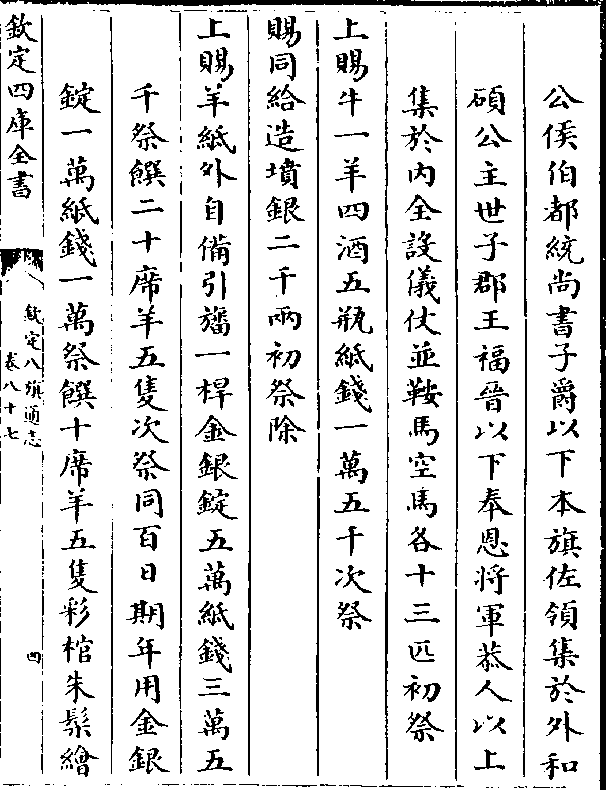 公侯伯都統尚書子爵以下本旗佐領集於外和
碩公主世子郡王福晉以下奉恩將軍恭人以上
集於内全設儀仗並鞍馬空馬各十三匹初祭
上賜牛一羊四酒五瓶紙錢一萬五千次祭
賜同給造墳銀二千兩初祭除
上賜羊紙外自備引旛一桿金銀錠五萬紙錢三萬五
千祭饌二十席羊五隻次祭同百日期年用金銀
錠一萬紙錢一萬祭饌十席羊五隻彩棺朱髹繪
欽定四庫全書
欽定八旗通志
卷八十七
四